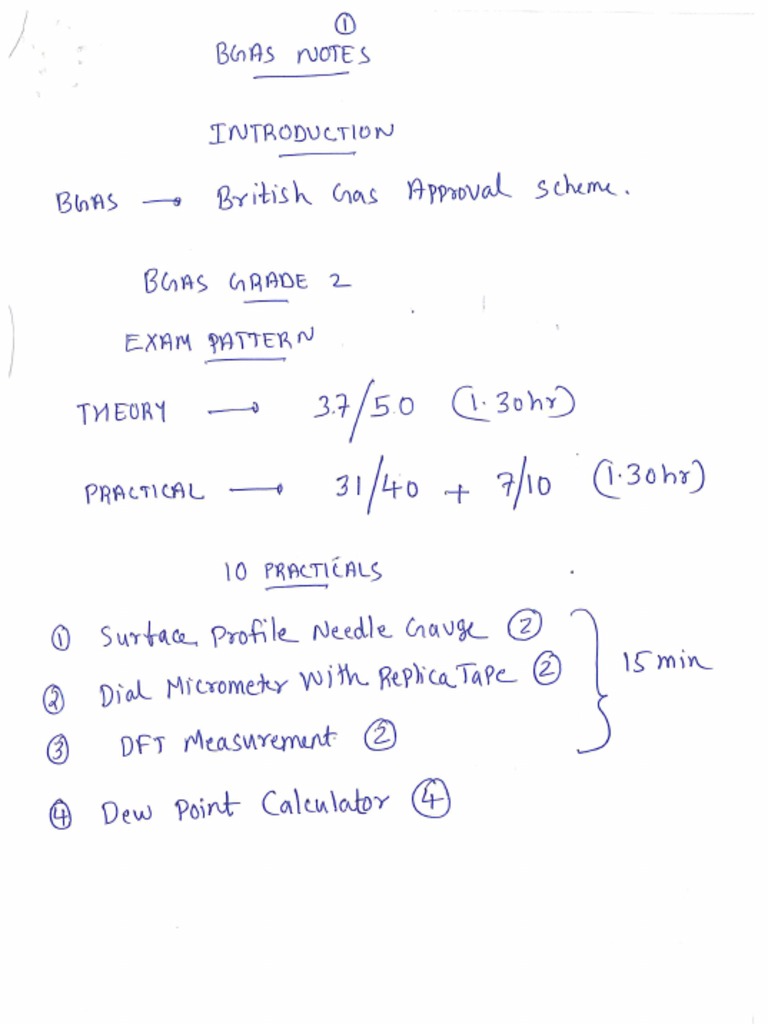 ①
BGAS NOTES
INTRODUCTION
BGAS → British Gas Approval scheme.
BGAS GRADE 2
EXAM PATTERN
THEORY → 37/50 (1.30hr)
PRACTICAL → 31/40 + 7/10 (1.30hr)
10 PRACTICALS
① Surface Profile Needle Gauge ②
② Dial Micrometer With Replica Tape ②
15 min
③ DFT Measurement ②
④ Dew Point Calculator ④